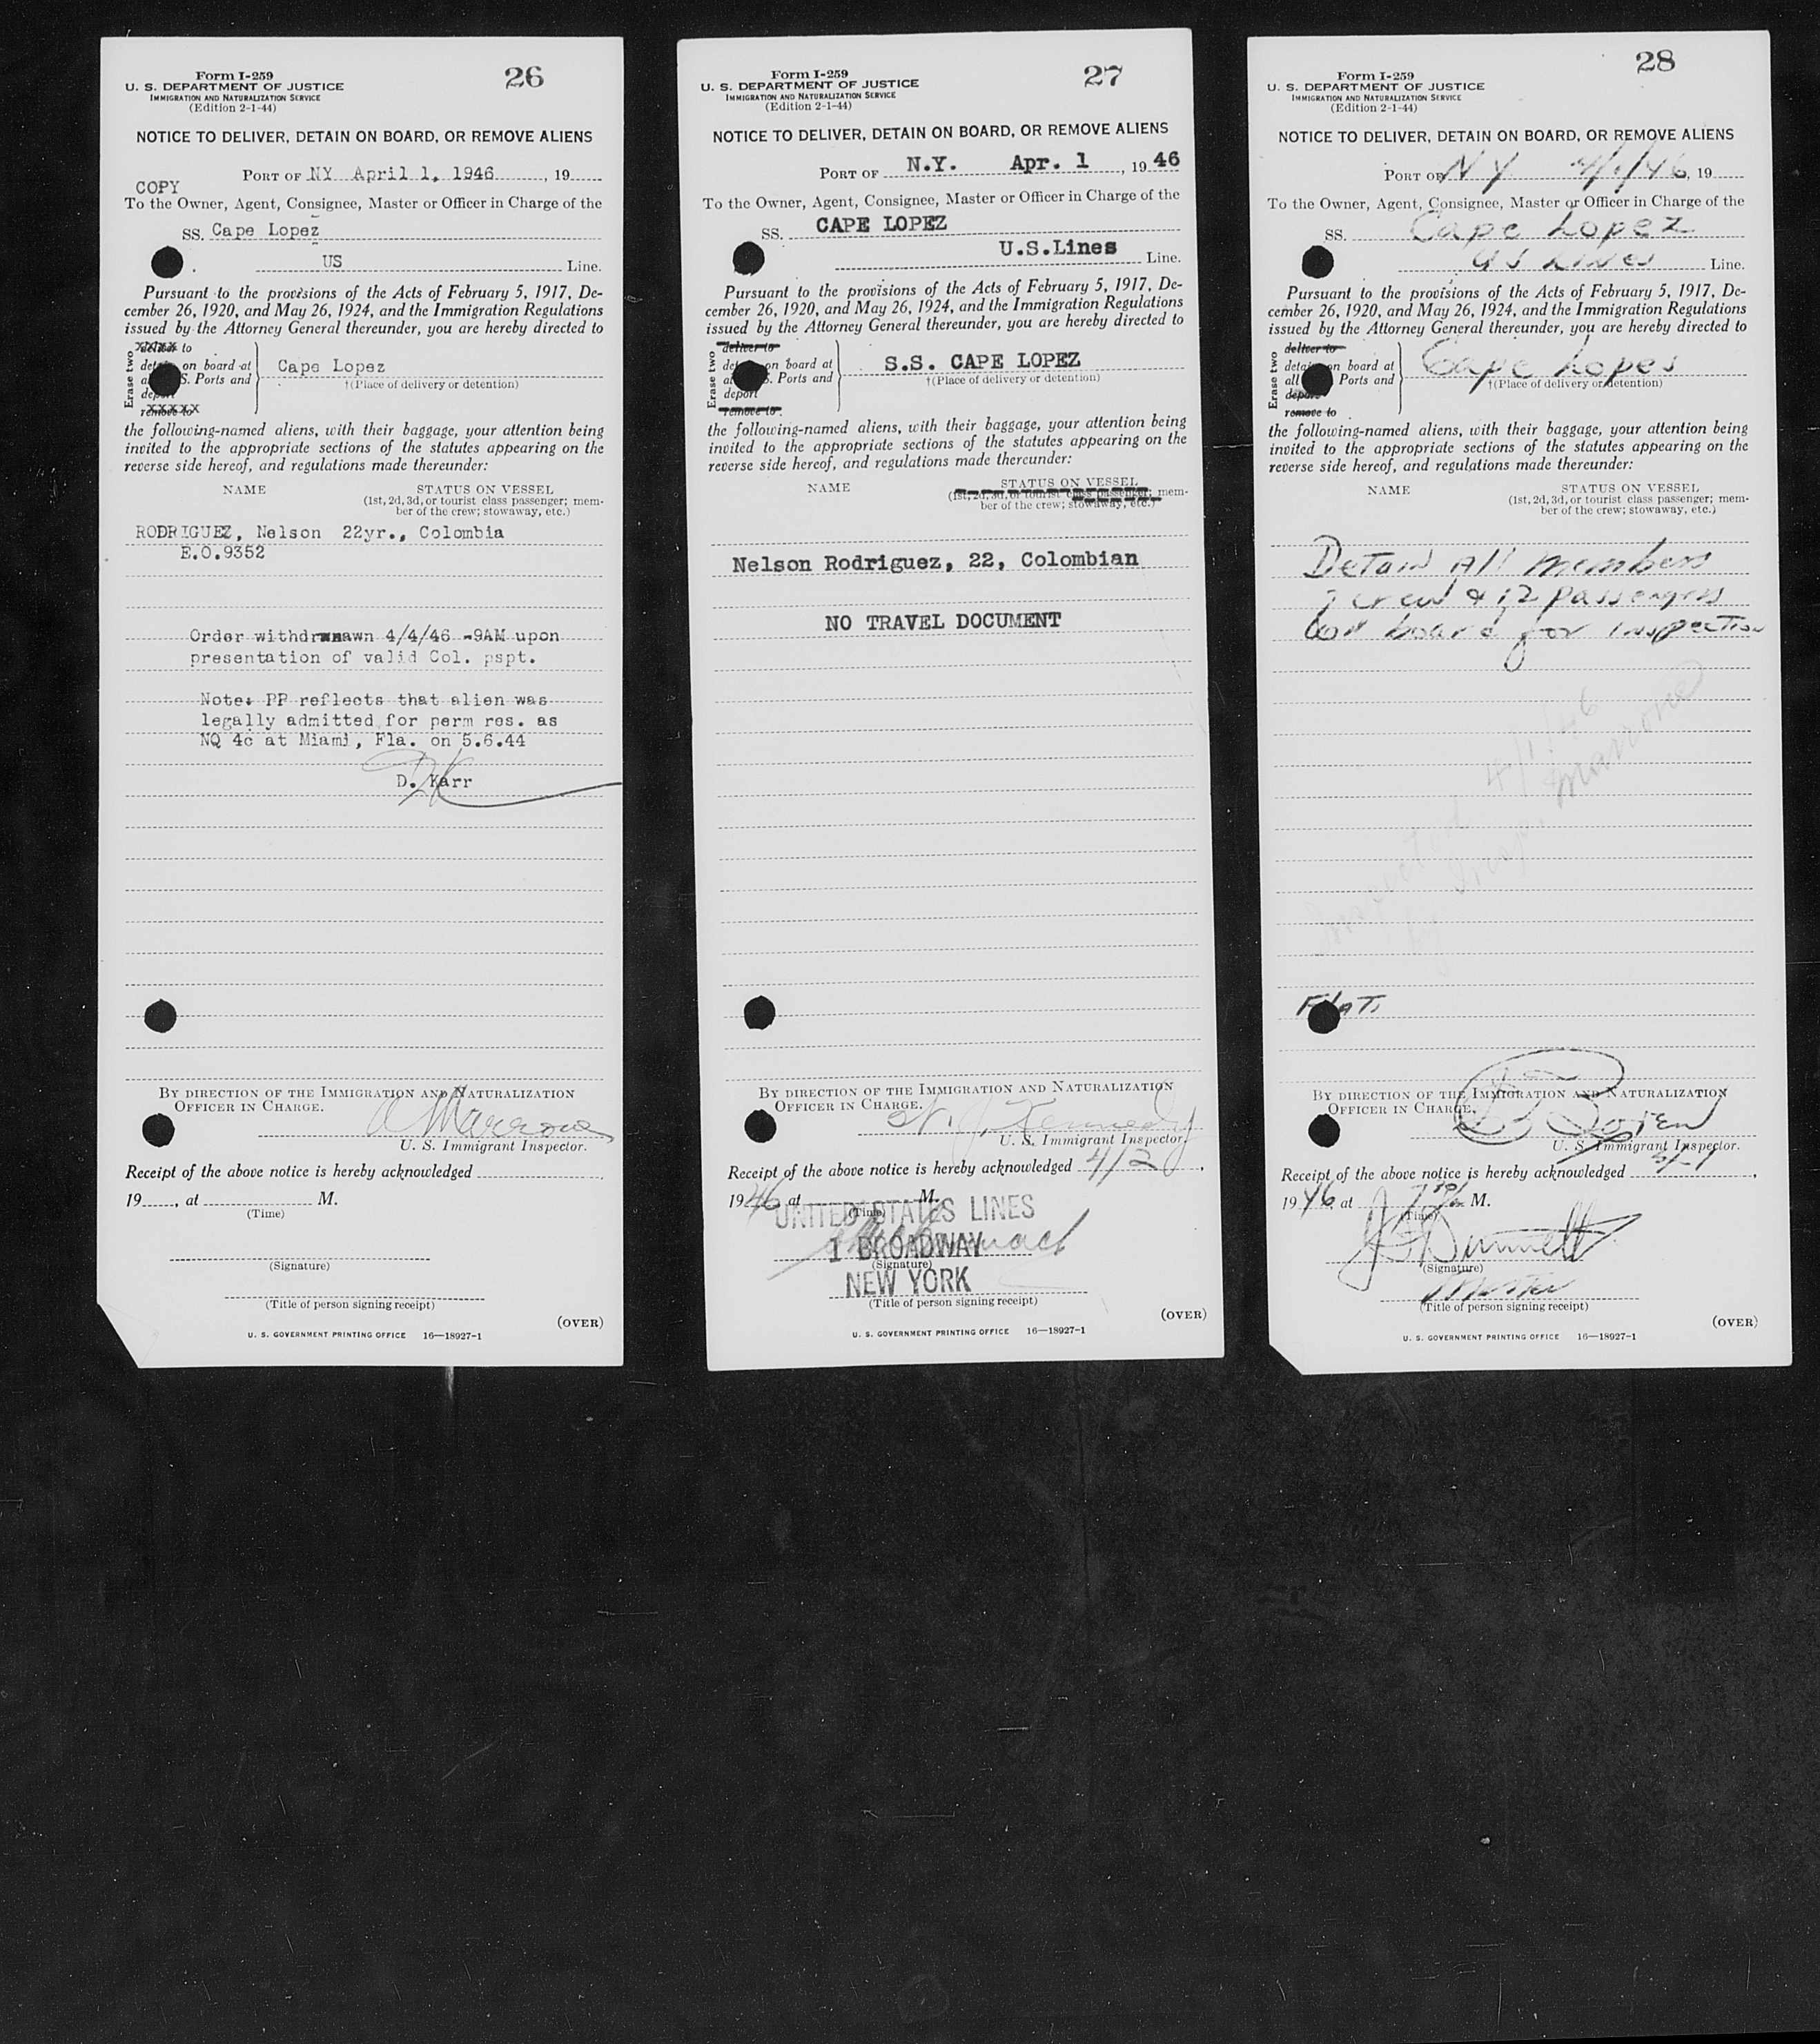 Form I-259
26
U. S. DEPARTMENT OF JUSTICE
IMMIGRATION AND NATURALIZATION SERVICE
(Edition 2-1-44)
NOTICE TO DELIVER, DETAIN ON BOARD, OR REMOVE ALIENS
PORT OF NY April 1, 1946, 19
COPY
To the Owner, Agent, Consignee, Master or Officer in Charge of the
SS. Cape Lopez
US Line.
Pursuant to the provisions of the Acts of February 5, 1917, De-
cember 26, 1920, and May 26, 1924, and the Immigration Regulations
issued by the Attorney General thereunder, you are hereby directed to
Erase two
deliver to
on board at
Cape Lopez
S. Ports and
†(Place of delivery or detention)
deport
remove to
the following-named aliens, with their baggage, your attention being
invited to the appropriate sections of the statutes appearing on the
reverse side hereof, and regulations made thereunder:
NAME STATUS ON VESSEL
(1st, 2d, 3d, or tourist class passenger; mem-
ber of the crew; stowaway, etc.)
RODRIGUEZ, Nelson 22yr., Colombia
E.O.9352
Order withdrawn 4/4/46 -9AM upon
presentation of valid Col. pspt.
Note: PP reflects that alien was
legally admitted for perm res. as
NQ 4c at Miami, Fla. on 5.6.44
D. Karr
BY DIRECTION OF THE IMMIGRATION AND NATURALIZATION
OFFICER IN CHARGE.
U. S. Immigrant Inspector.
Receipt of the above notice is hereby acknowledged
19, at M.
(Time)
(Signature)
(Title of person signing receipt)
(OVER)
U. S. GOVERNMENT PRINTING OFFICE 16—18927-1
Form I-259
27
U. S. DEPARTMENT OF JUSTICE
IMMIGRATION AND NATURALIZATION SERVICE
(Edition 2-1-44)
NOTICE TO DELIVER, DETAIN ON BOARD, OR REMOVE ALIENS
PORT OF N.Y. Apr. 1, 1946
To the Owner, Agent, Consignee, Master or Officer in Charge of the
SS. CAPE LOPEZ
U.S.Lines Line.
Pursuant to the provisions of the Acts of February 5, 1917, De-
cember 26, 1920, and May 26, 1924, and the Immigration Regulations
issued by the Attorney General thereunder, you are hereby directed to
Erase two
deliver to
on board at
S.S. CAPE LOPEZ
Ports and
†(Place of delivery or detention)
deport
remove to
the following-named aliens, with their baggage, your attention being
invited to the appropriate sections of the statutes appearing on the
reverse side hereof, and regulations made thereunder:
NAME STATUS ON VESSEL
(1st, 2d, 3d, or tourist class passenger; mem-
ber of the crew; stowaway, etc.)
Nelson Rodriguez, 22, Colombian
NO TRAVEL DOCUMENT
BY DIRECTION OF THE IMMIGRATION AND NATURALIZATION
OFFICER IN CHARGE.
Kennedy
U. S. Immigrant Inspector.
Receipt of the above notice is hereby acknowledged 4/2,
1946 at M.
(Time)
UNITED STATES LINES
1 BROADWAY
(Signature)
NEW YORK
(Title of person signing receipt)
(OVER)
U. S. GOVERNMENT PRINTING OFFICE 16—18927-1
Form I-259
28
U. S. DEPARTMENT OF JUSTICE
IMMIGRATION AND NATURALIZATION SERVICE
(Edition 2-1-44)
NOTICE TO DELIVER, DETAIN ON BOARD, OR REMOVE ALIENS
PORT OF N Y 4/1/46, 19
To the Owner, Agent, Consignee, Master or Officer in Charge of the
SS. Cape Lopez
US Lines Line.
Pursuant to the provisions of the Acts of February 5, 1917, De-
cember 26, 1920, and May 26, 1924, and the Immigration Regulations
issued by the Attorney General thereunder, you are hereby directed to
Erase two
deliver to
on board at
Cape Lopes
all Ports and
†(Place of delivery or detention)
remove to
the following-named aliens, with their baggage, your attention being
invited to the appropriate sections of the statutes appearing on the
reverse side hereof, and regulations made thereunder:
NAME STATUS ON VESSEL
(1st, 2d, 3d, or tourist class passenger; mem-
ber of the crew; stowaway, etc.)
Detain All members
crew & 12 passengers
on board for inspection
Inspected 4/1/46
by Insp. Marrone
BY DIRECTION OF THE IMMIGRATION AND NATURALIZATION
OFFICER IN CHARGE.
U. S. Immigrant Inspector.
Receipt of the above notice is hereby acknowledged
1946 at M.
(Time)
(Signature)
Master
(Title of person signing receipt)
(OVER)
U. S. GOVERNMENT PRINTING OFFICE 16—18927-1